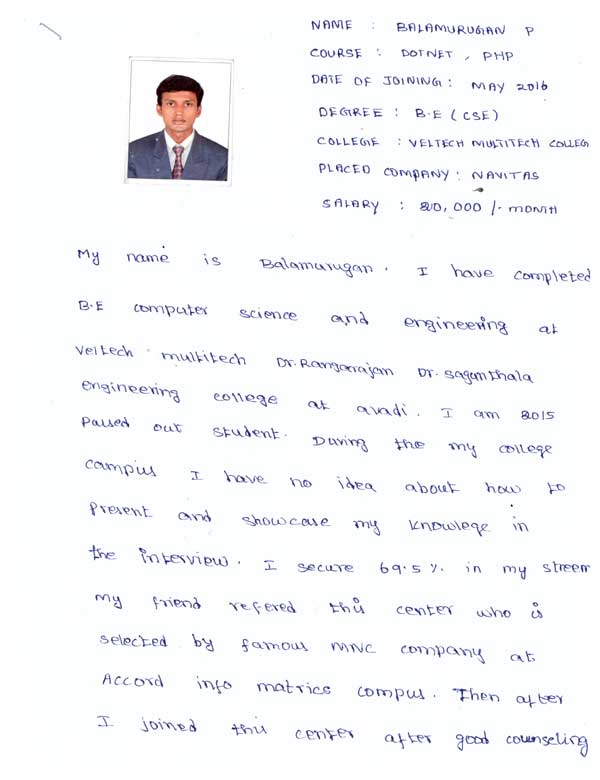 NAME : BALAMURUGAN P
COURSE : DOTNET , PHP
DATE OF JOINING : MAY 2016
DEGREE : B.E (CSE)
COLLEGE : VELTECH MULTITECH COLLEG
PLACED COMPANY : NAVITAS
SALARY : 20,000 /- MONTH
My name is Balamurugan. I have completed
B.E computer science and engineering at
veltech multitech Dr.Rangarajan Dr.Sagunthala
engineering college at avadi. I am 2015
passed out student. During the my college
campus I have no idea about how to
present and showcase my knowlege in
the interview. I secure 69.5% in my streem
my friend refered this center who is
selected by famous MNC company at
Accord info matrics compus. Then after
I joined this center after good counseling